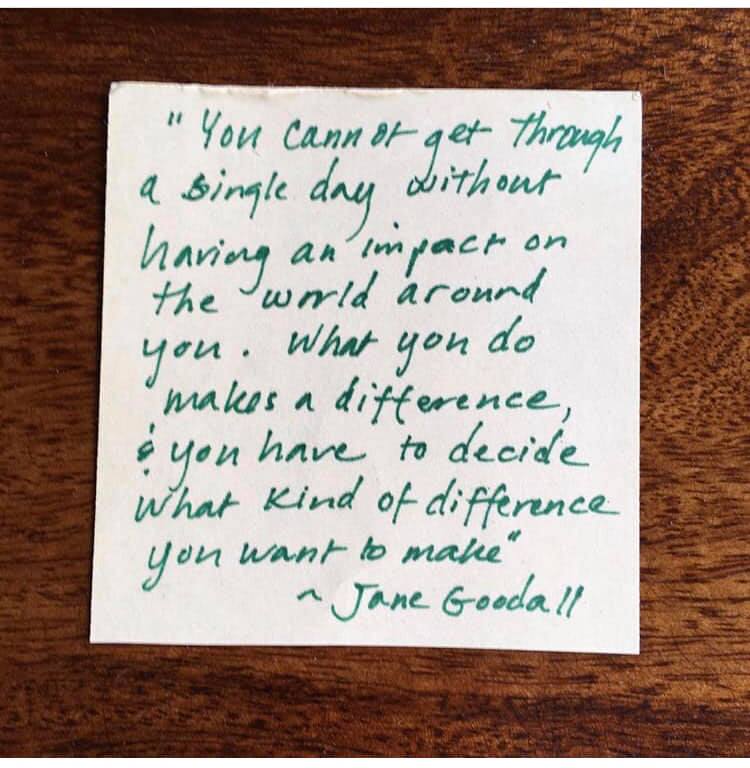 " You cannot get through
a single day without
having an impact on
the world around
you. What you do
makes a difference,
& you have to decide
what kind of difference
you want to make"
~ Jane Goodall